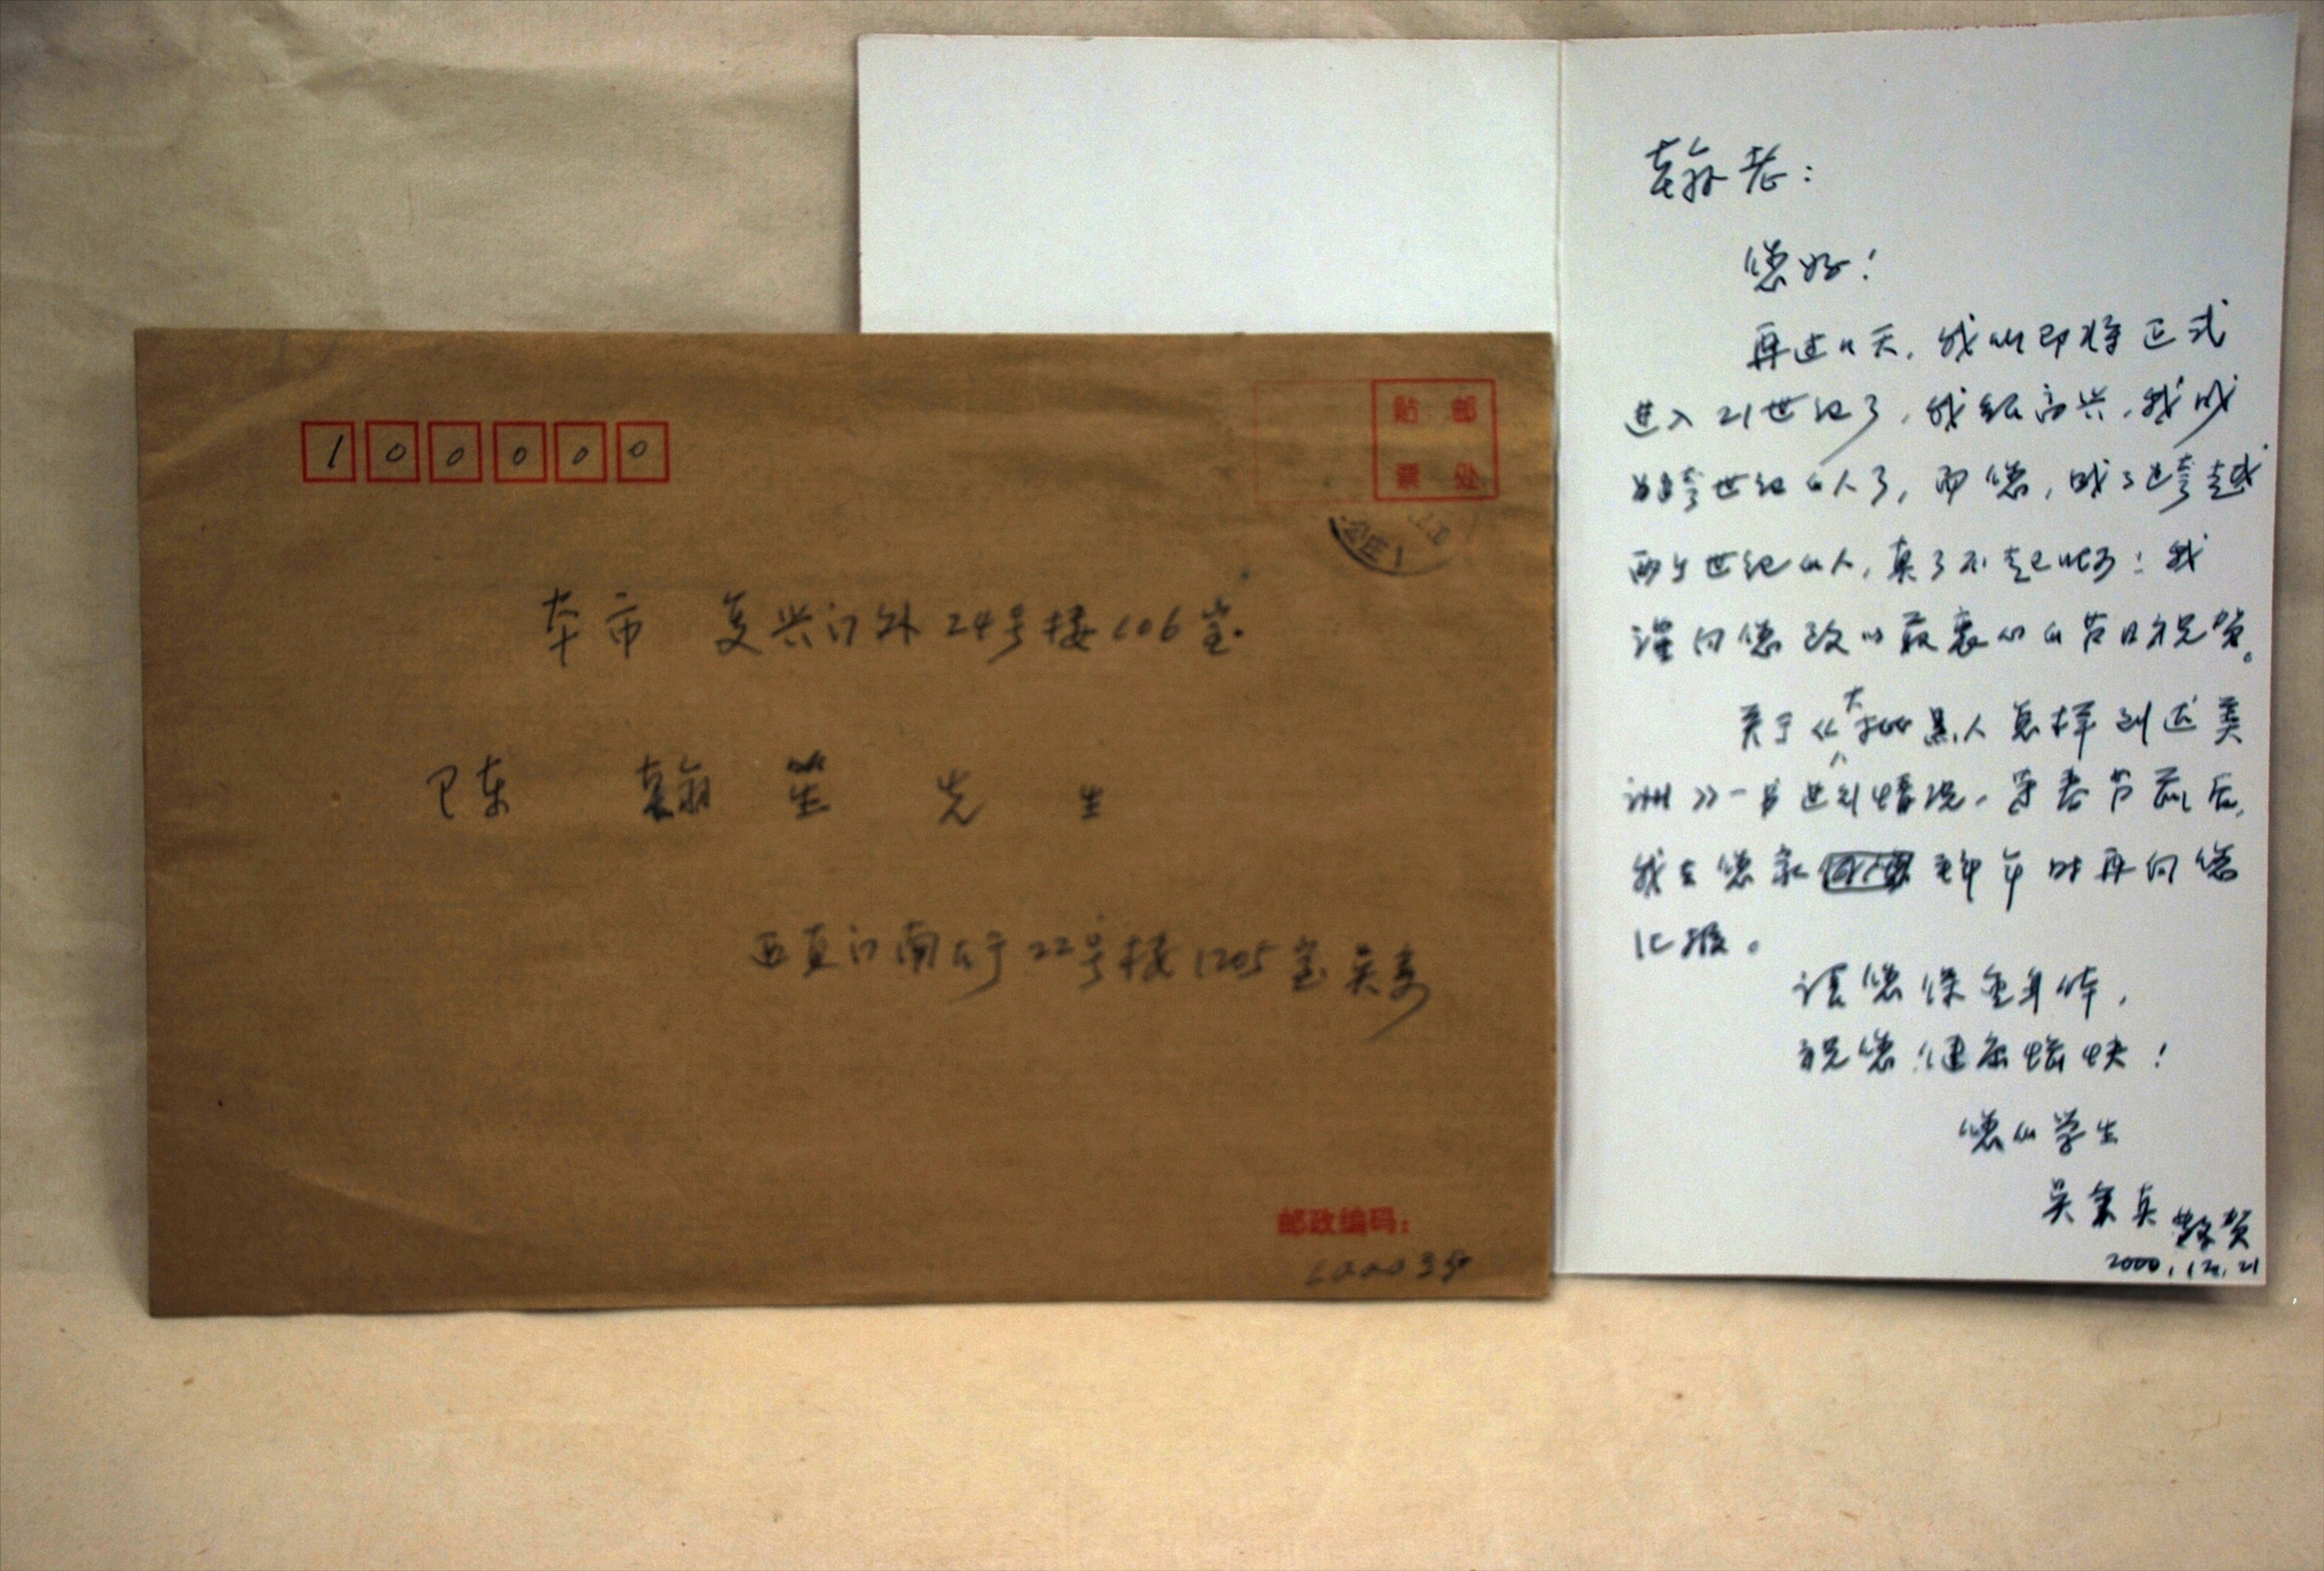 100000
贴 邮
票 处
本市 复兴门外24号楼106室
陈 翰 笙 先 生
西直门南大街22号楼1205室 吴
邮政编码:
100035
翰老:
您好!
再过11天,我们即将正式
进入21世纪了,我很高兴,我成
为跨世纪的人了,而您,成了跨越
两个世纪的人,真了不起啊!我
谨向您致以最衷心的节日祝贺。
关于《大批黑人怎样到达美
洲》一书进行情况,等春节前后,
我去您家 拜年时再向您
汇报。
请您保重身体,
祝您健康愉快!
您的学生
吴秉真 敬贺
2000.12.21